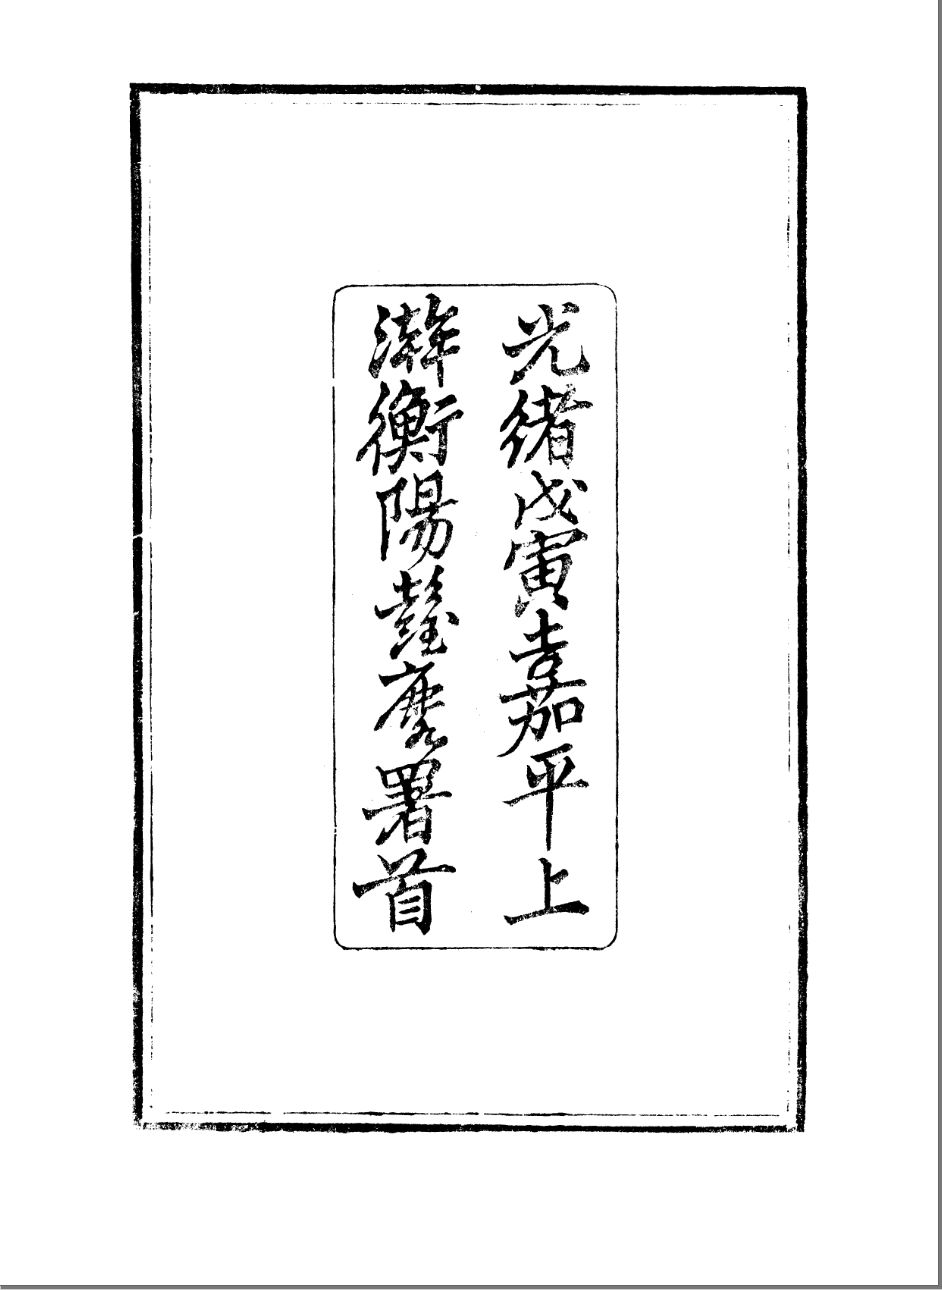 光緒戊寅嘉平上
澣衡陽彭玉麐署首